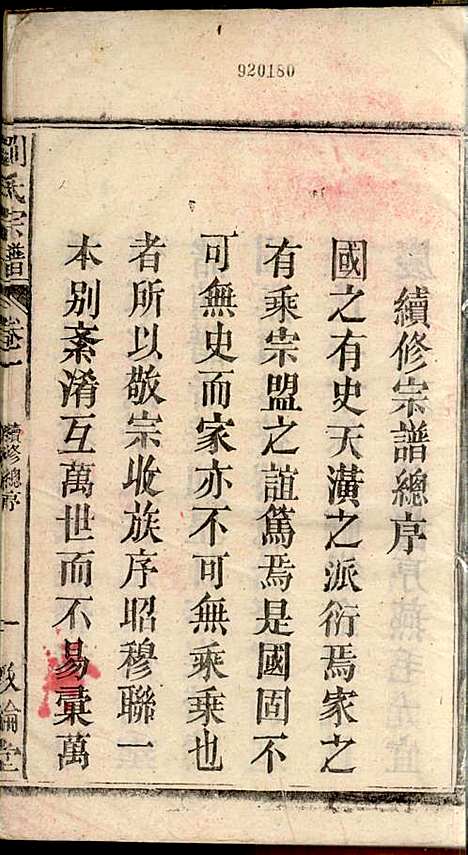 920180
續修宗譜總序
國之有史天潢之派衍焉家之
有乘宗盟之誼篤焉是國固不
可無史而家亦不可無乘乘也
者所以敬宗收族序昭穆聯一
本別紊淆互萬世而不易彙萬
劉氏宗譜 卷一 續修總序 一 敘倫堂